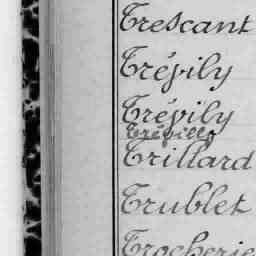 Trescant
Trévily
Trévily
Trévilly
Trillard
Trublet
Trocherie